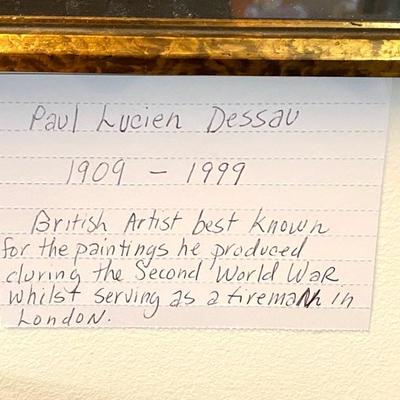 Paul Lucien Dessau
1909 - 1999
British Artist best known
for the paintings he produced
during the Second World War
whilst serving as a fireman in
London.